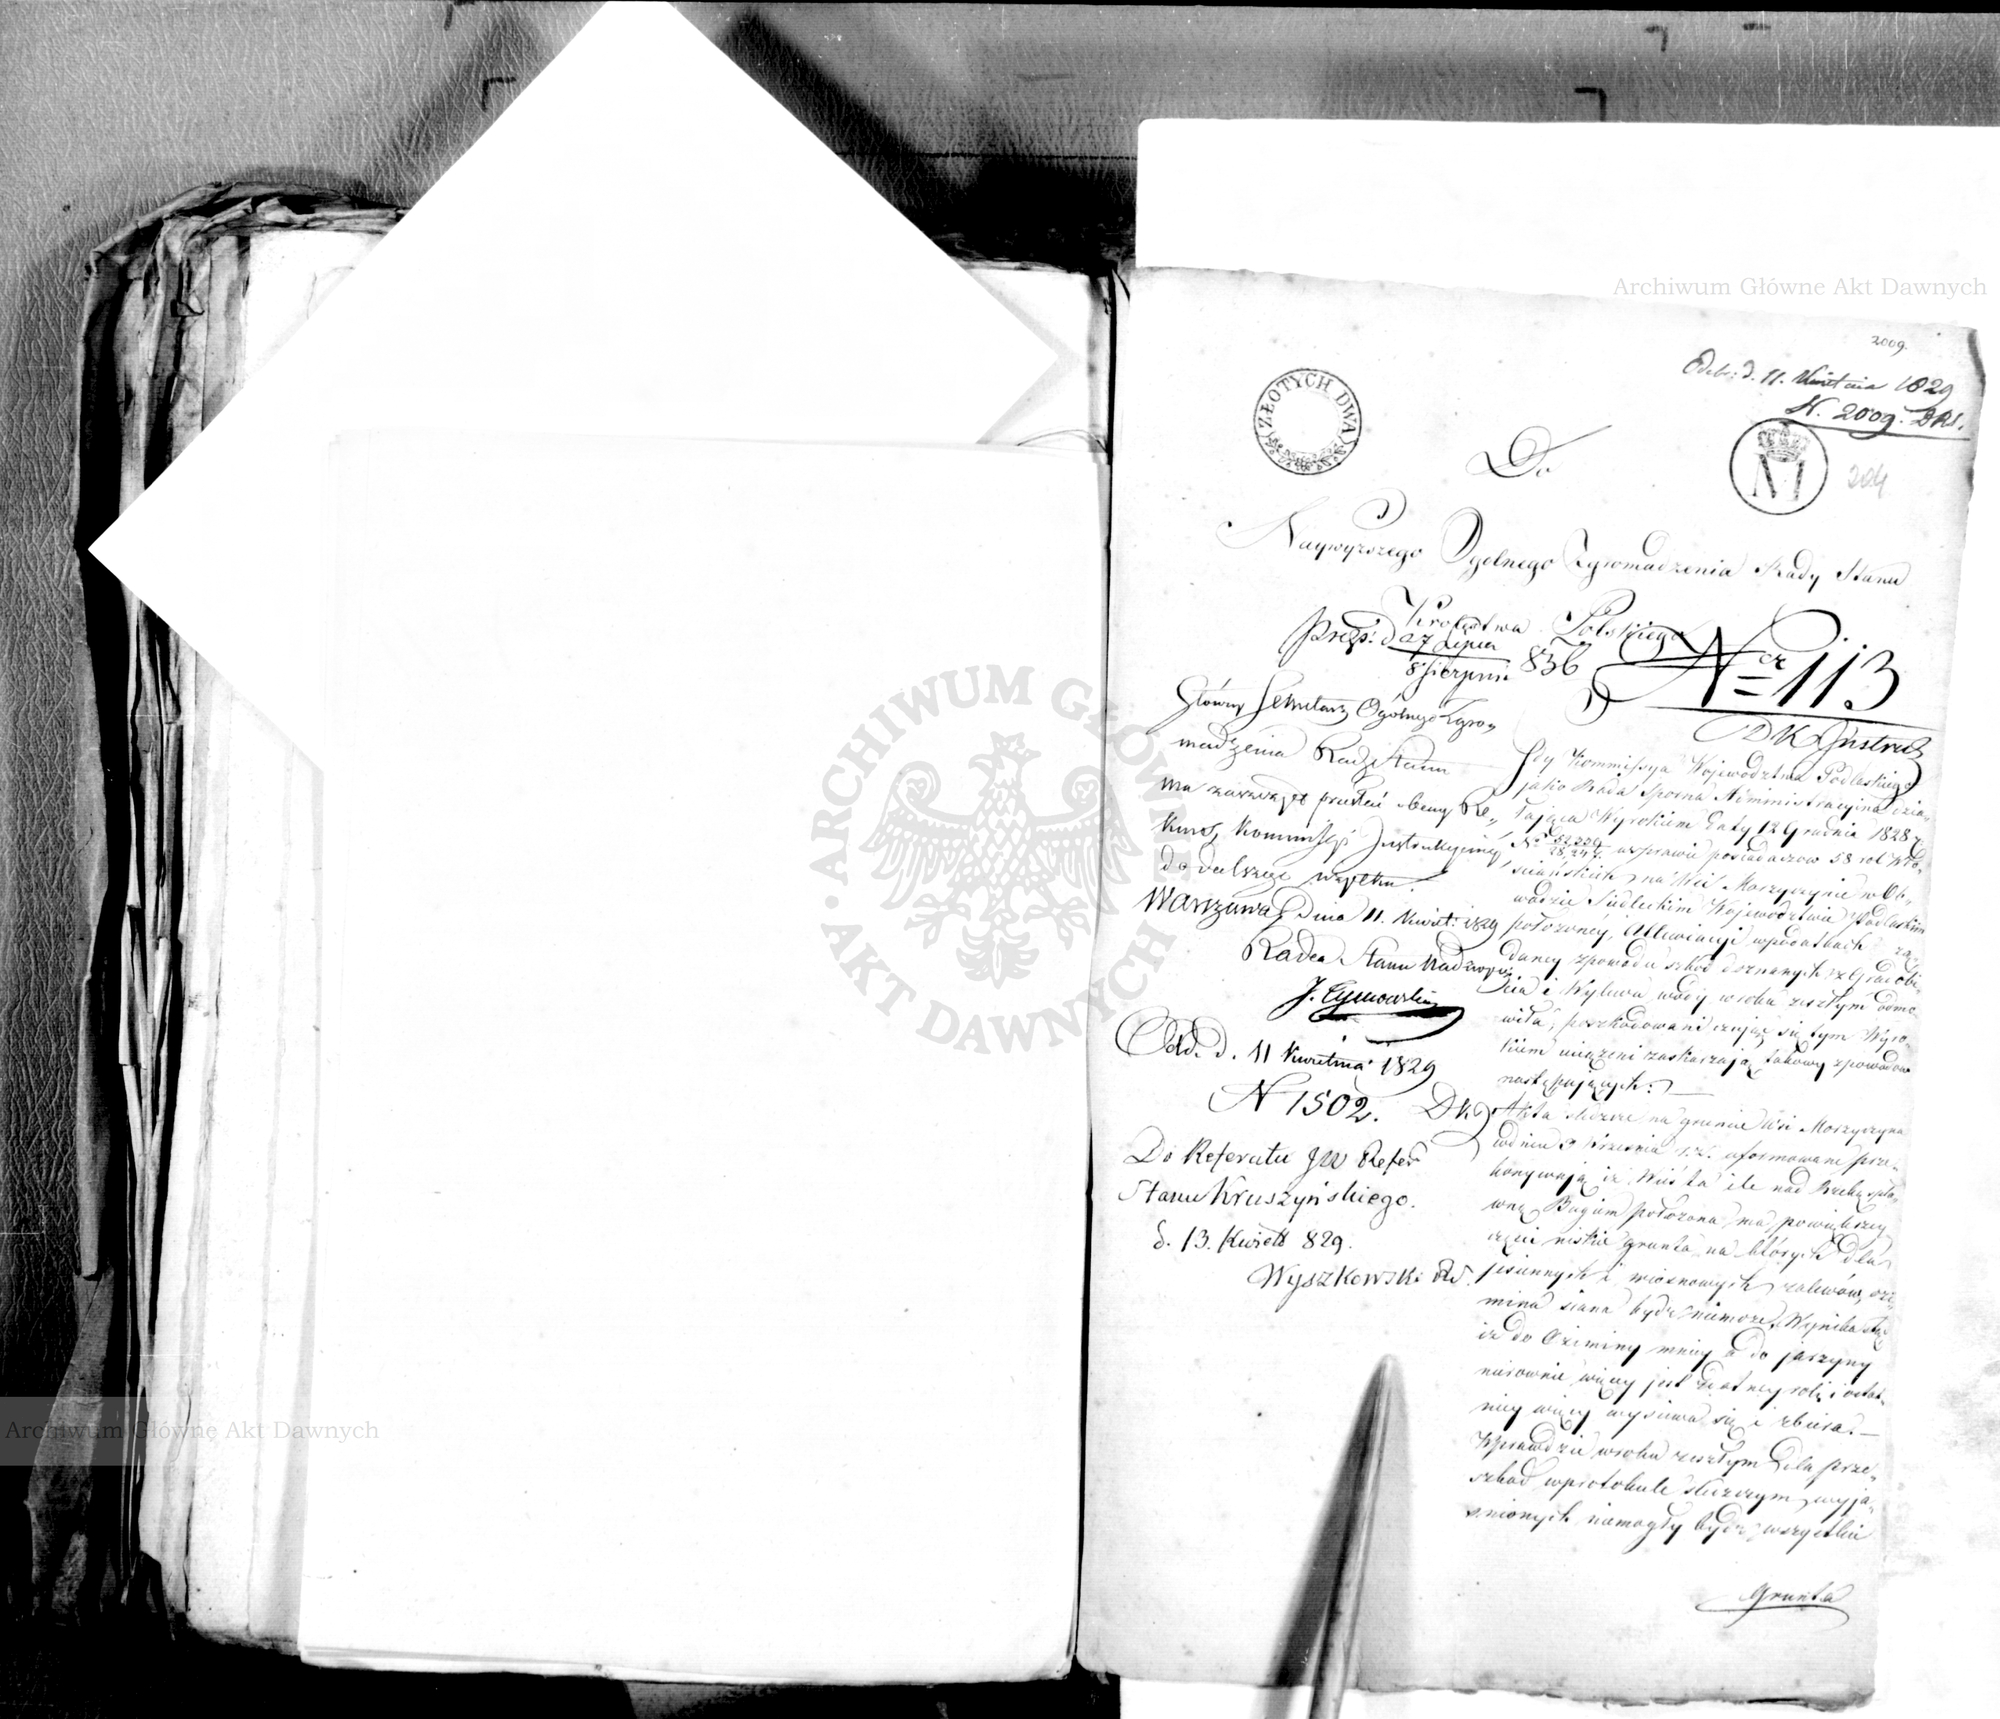 Archiwum Główne Akt Dawnych
2009.
Odebr: d. 11. Kwietnia 1829
N. 2009. DRS.
ZŁOTYCH DWA
204
Do
Naywyższego Ogolnego Zgromadzenia Rady Stanu
Królestwa Polskiego
Prez: d 27 Lipca
8 Sierpnia 836
Ner 113
DK Instruk
Główny Sekretarz Ogólnego Zgro„
madzenia Rady Stanu
ma zaraz przesłać obecny Re„
kurs Kommissyi Instrukcyiney
do dalszego
Warszawa Dnia 11. Kwiet: 1829
Radca Stanu Nadzwycz
J. Tymowski
Odd. d. 11 Kwietnia 1829
N 1502. DK
Do Referatu JW Refer
Stanu Kruszyńskiego.
d. 13. Kwiett 829.
Wyszkowski RS.
Gdy Kommissya Wojewodztwa Podlaskiego
jako Rada Sporna Administracyina dzia„
łająca Wyrokiem daty 12 Grudnia 1828 r
w sprawie posiadaczow 58 rol Wło„
sciańskich na Wsi Morzyczynie w Ob„
wodzie Siedleckim Wojewodztwie Podlaskim
położoney, Allewiacyi w podatkach żą„
daney z powodu szkod doznanych z Gradobi„
cia i Wylewu wody w roku zeszłym odmo„
wiła, poszkodowani czując się tym Wyro„
kiem uciążeni zaskarżają takowy z powodow
następujących: —
Akta śledcze na gruncie Wsi Morzyczyna
w dniu 3 Września r. z. uformowane prze„
konywują iż Wieś ta ile nad Rzeką spła„
wną Bugiem położona, ma po większey
części niskie grunta na których dla
jesiennych i wiosnowych zalewów, ozi„
mina siana bydz niemoże. Wynika stąd
iż do Oziminy mniey a do jarzyny
nierownie więcey jest zdatney roli i ostat„
niey więcey wysiewa się i zbiera. —
Wprawdzie w roku zeszłym dla prze„
szkod w protokule śledczym wyja„
śnionych niemogły bydz wszystkie
Grunta
ARCHIWUM GŁÓWNE · AKT DAWNYCH ·
Archiwum Główne Akt Dawnych